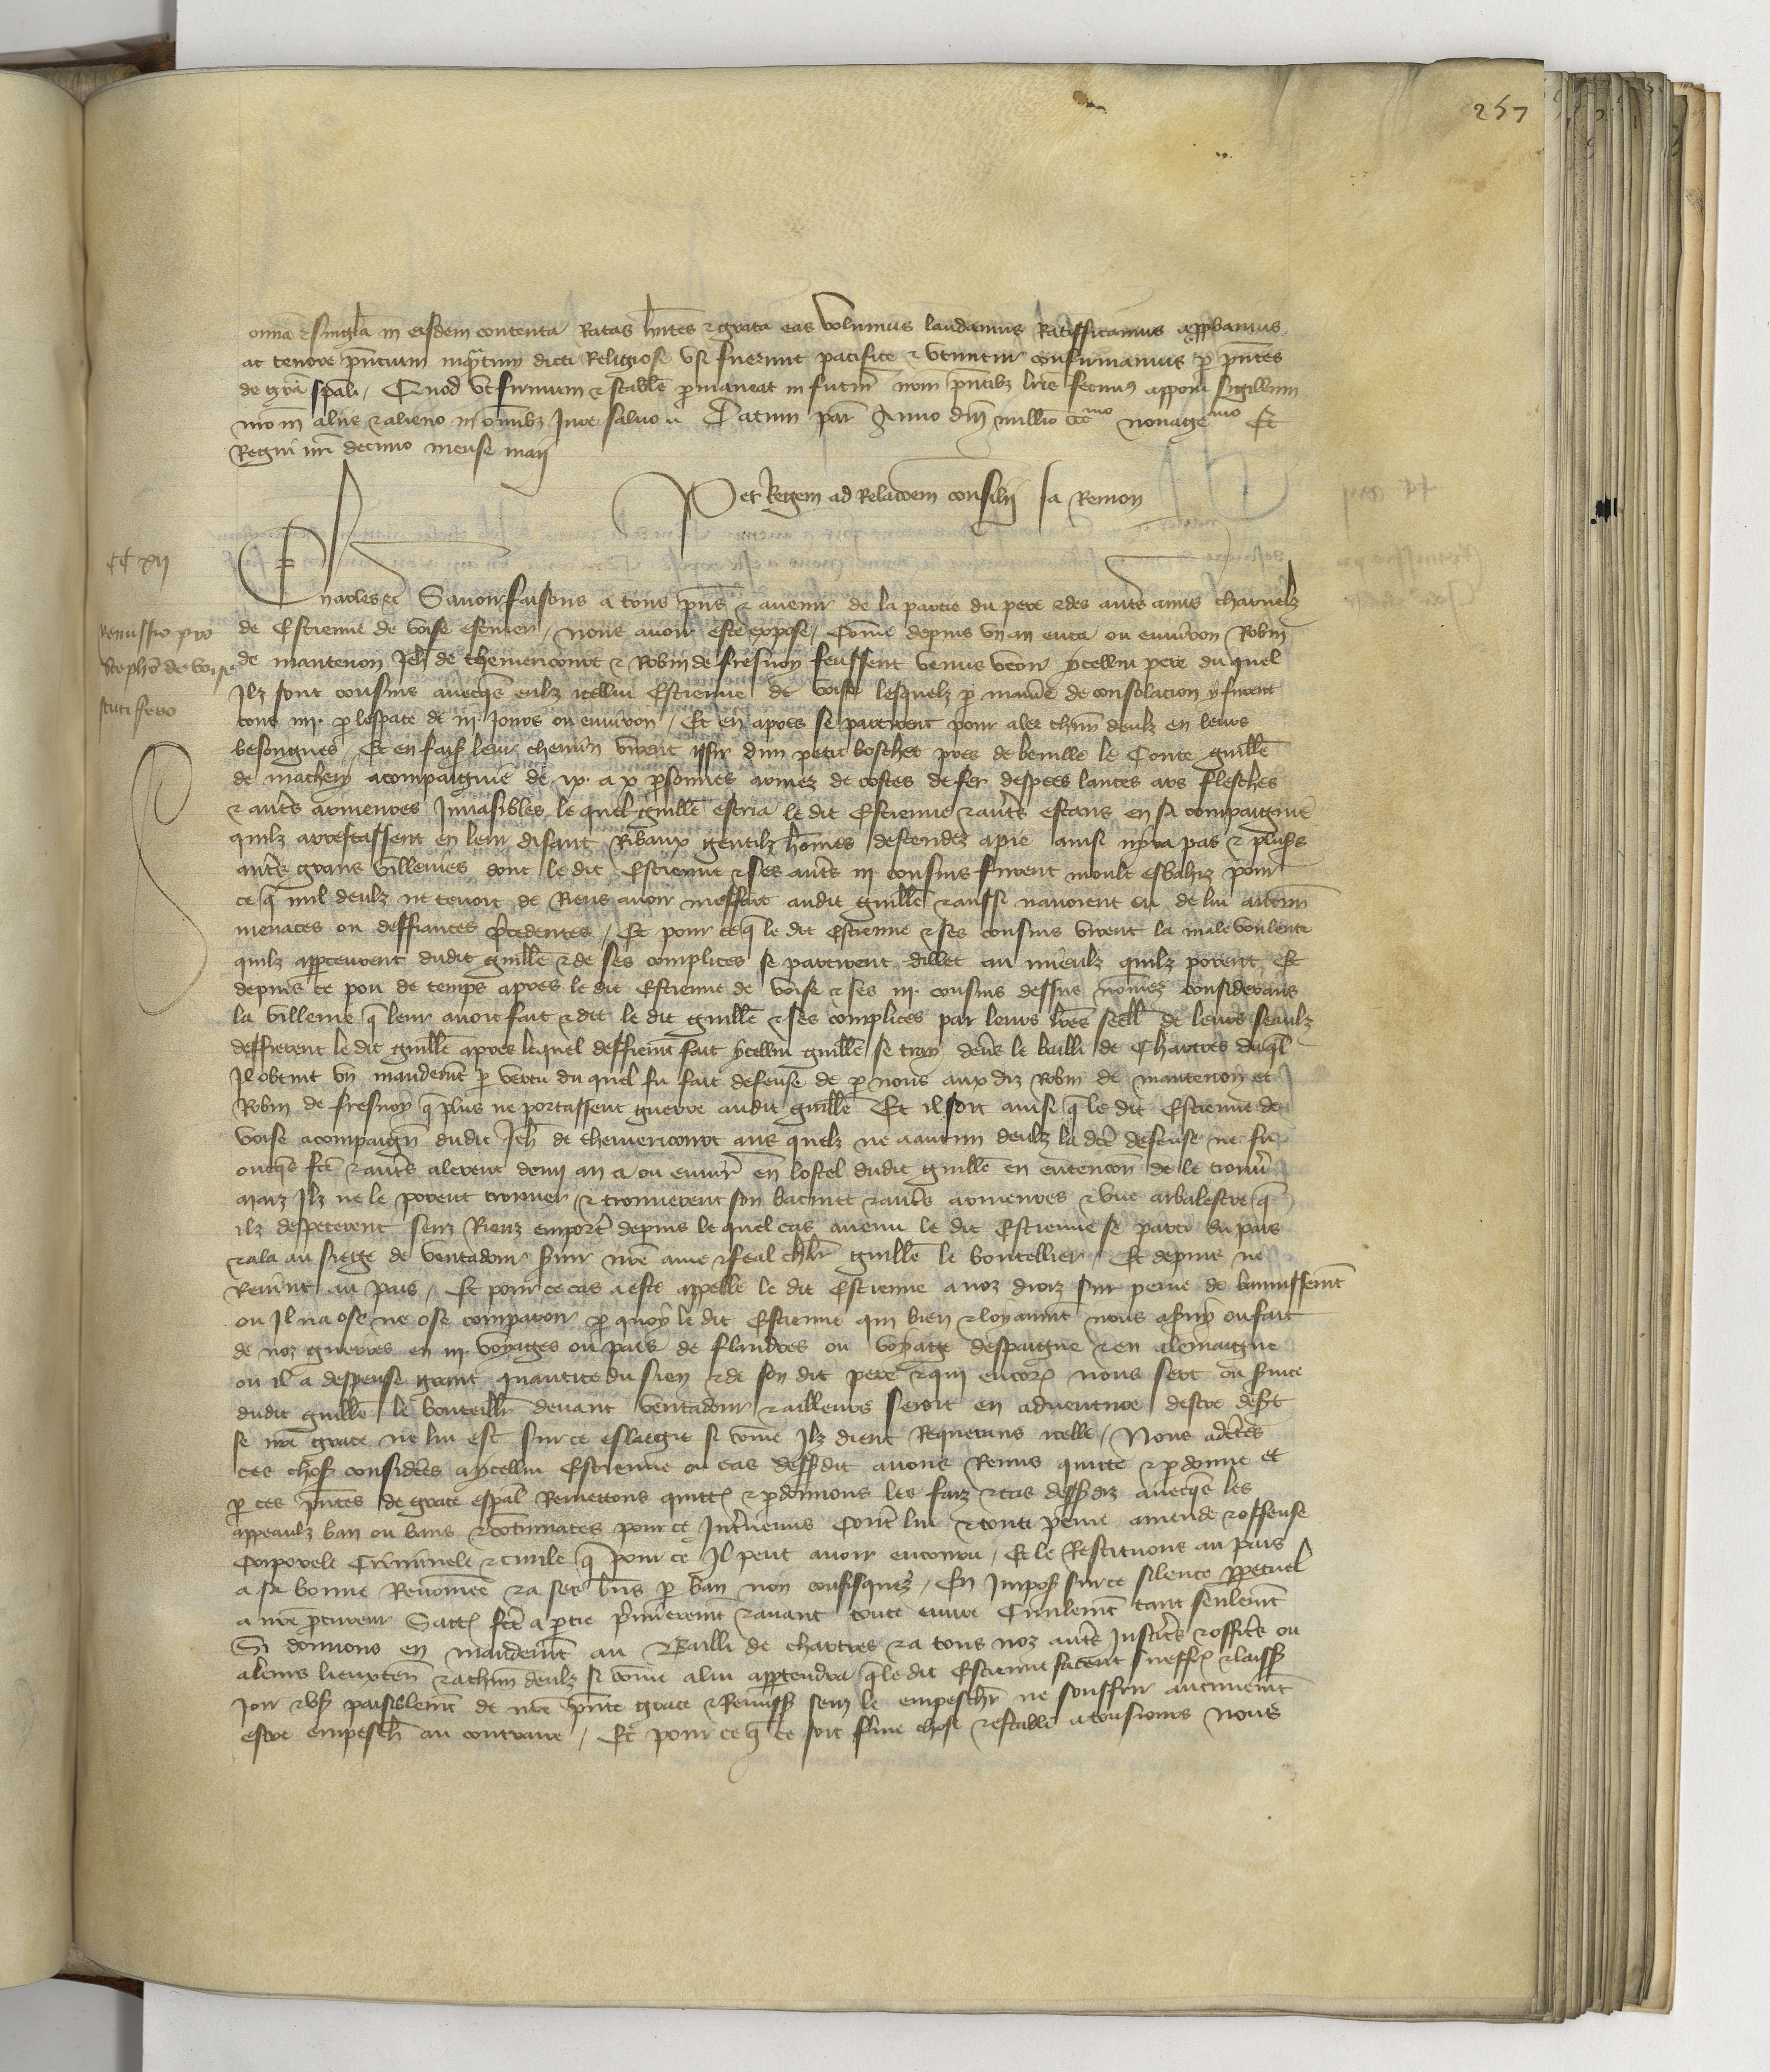 257
omnia & singula in eisdem contenta Ratas hntes & grata eas volumus laudamus Ratifficamus approbamus
ac tenore pntium inqntum dicti Religiosi usi fuerunt pacifice & utuntur confirmamus p pntes
de gra spali, Quod ut firmum & stabile pmaneat in futur nrm pntibz lris fecimus apponi sigillum
nro in aliis & alieno in omibz Jure salvo Datum par Anno dni millio ccc mo nonage mo Et
Regni nri decimo mense maii
Per Regem ad Relacoem consilii Ja Remon
CC XII
Charles etc Savoir faisons a tous pns & avenir de la partie du pere & des autres amis charnelz
Remissio pro
de Estienne de voise escuier, nous avoir este expose, Come depuis un an enca ou environ Robin
Stepho de voise
de mantenon Jeh de themericourt & Robin de fresnoy feussent venus veoir ycellui pere du quel
scutifero
Ilz sont cousins avecqs eulz icellui Estienne de voise lesquelz p maniere de consolacion y furent
tous iiii. p lespace de iii. Jours ou environ, Et en apres se partirent pour aler chun deulz en leurs
besongnes, Et en fais leur chemin virent issir dun petit boschet pres de beville le Conte guille
de machery acompaignie de ix. a x psonnes armez de costes de fer despees lances ars flesches
& autres armeures Invasibles le quel guille escria le dit Estienne & autres estans en sa compaignie
quilz arrestassent en leur disant Ribaux gentilz homes descendez a pie ainsi nyra pas & plus
autres grans villenies dont le dit Estienne & ses autres iii cousins furent moult esbahiz pour
ce q nul deulz ne tenoit de Riens avoir meffait audit guille & aussi navoient eu de lui aucun
menaces ou deffiances precedentes, Et pour ce q le dit Estienne & ses cousins virent la male voulente
quilz apperceurent dudit guille & de ses complices se partirent dillec au mieulz quilz porent Et
depuis ce pou de temps apres le dit Estienne de voise & ses iii. cousins dessus nomez considerans
la villenie q leur avoit fait & dit le dit guille & ses complices par leurs lres seell de leurs seaulz
deffierent le dit guille apres lequel deffiemt fait ycellui guille se tray devs le bailli de Chartres duql
Il obtint un mandemt p vertu du quel fu fait defense de p nous aux diz Robin de mantenon et
Robin de fresnoy q plus ne portassent guerre audit guille Et il soit ainsi q le dit Estienne de
voise acompaign dudit Jeh de themericourt aus quelz ne a aucun deulz la dce defense ne fu
oncqs fce & autres alerent demy an a ou envir en lostel dudit guille en entencon de le trouv
maiz Ilz ne le porent trouver & trouverent son bacinet & autres armeures & une arbalestre q
ilz despecerent senz Rienz emporter depuis le quel cas avenu le dit Estienne se parti du pais
& ala au siege de ventadour souz nre ame & feal chlr guille le bouteillier, Et depuis ne
Revint au pais, Et pour ce cas a este appelle le dit Estienne a noz droiz sur peine de bannissemt
ou Il na ose ne ose comparoir p quoy le dit Estienne qui bien & loyaumt nous a suy ou fait
de noz guerres en iii. voyages ou pais de flandres ou voyage despaigne & en alemaigne
ou il a despense grant quantite du sien & de son dit pere & qui encores nous sert ou suice
dudit guille le bouteillr devant ventadour & ailleurs seroit en adventure destre desert
se nre grace ne lui est sur ce eslargie si come Ilz dient Requerans icelle, Nous adctes
ces choses consideres a ycellui Estienne ou cas dessusdit avons Remis quitte & pdonne et
p ces pntes de grace espal Remettons quittons & pdonnons les faiz & cas dessusdiz avecqs les
appeaulz ban ou bans & contumaces pour ce Intervenus Contre lui & toute peine amende & offense
Corporele Criminele & civile q pour ce Il peut avoir encouru, Et le Restituons au pais
a sa bonne Renomee & a ses biens p ban non confisquez, En Impos sur ce silence ppetuel
a nre pcureur Satisf fce a ptie premieremt & avant toute euvre Civilemt tant seulemt
Si donnons en mandemt au Bailli de chartres & a tous noz autres Justiciers & officiers ou
a leurs lieuxten & a chun deulz si come a lui appendra q le dit Estienne facent seuffr & laiss
Joir & us paisiblemt de nre pnte grace & Remiss senz le empeschr ne souffrir aucunemt
estre empesch au contraire, Et pour ce q ce soit ferme chose & estable a tousjours Nous